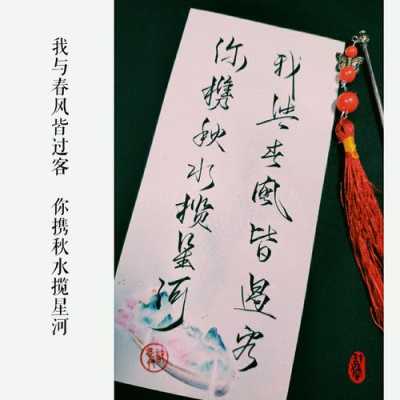 我与春风皆过客
你携秋水揽星河
我与春风皆过客
你携秋水揽星河